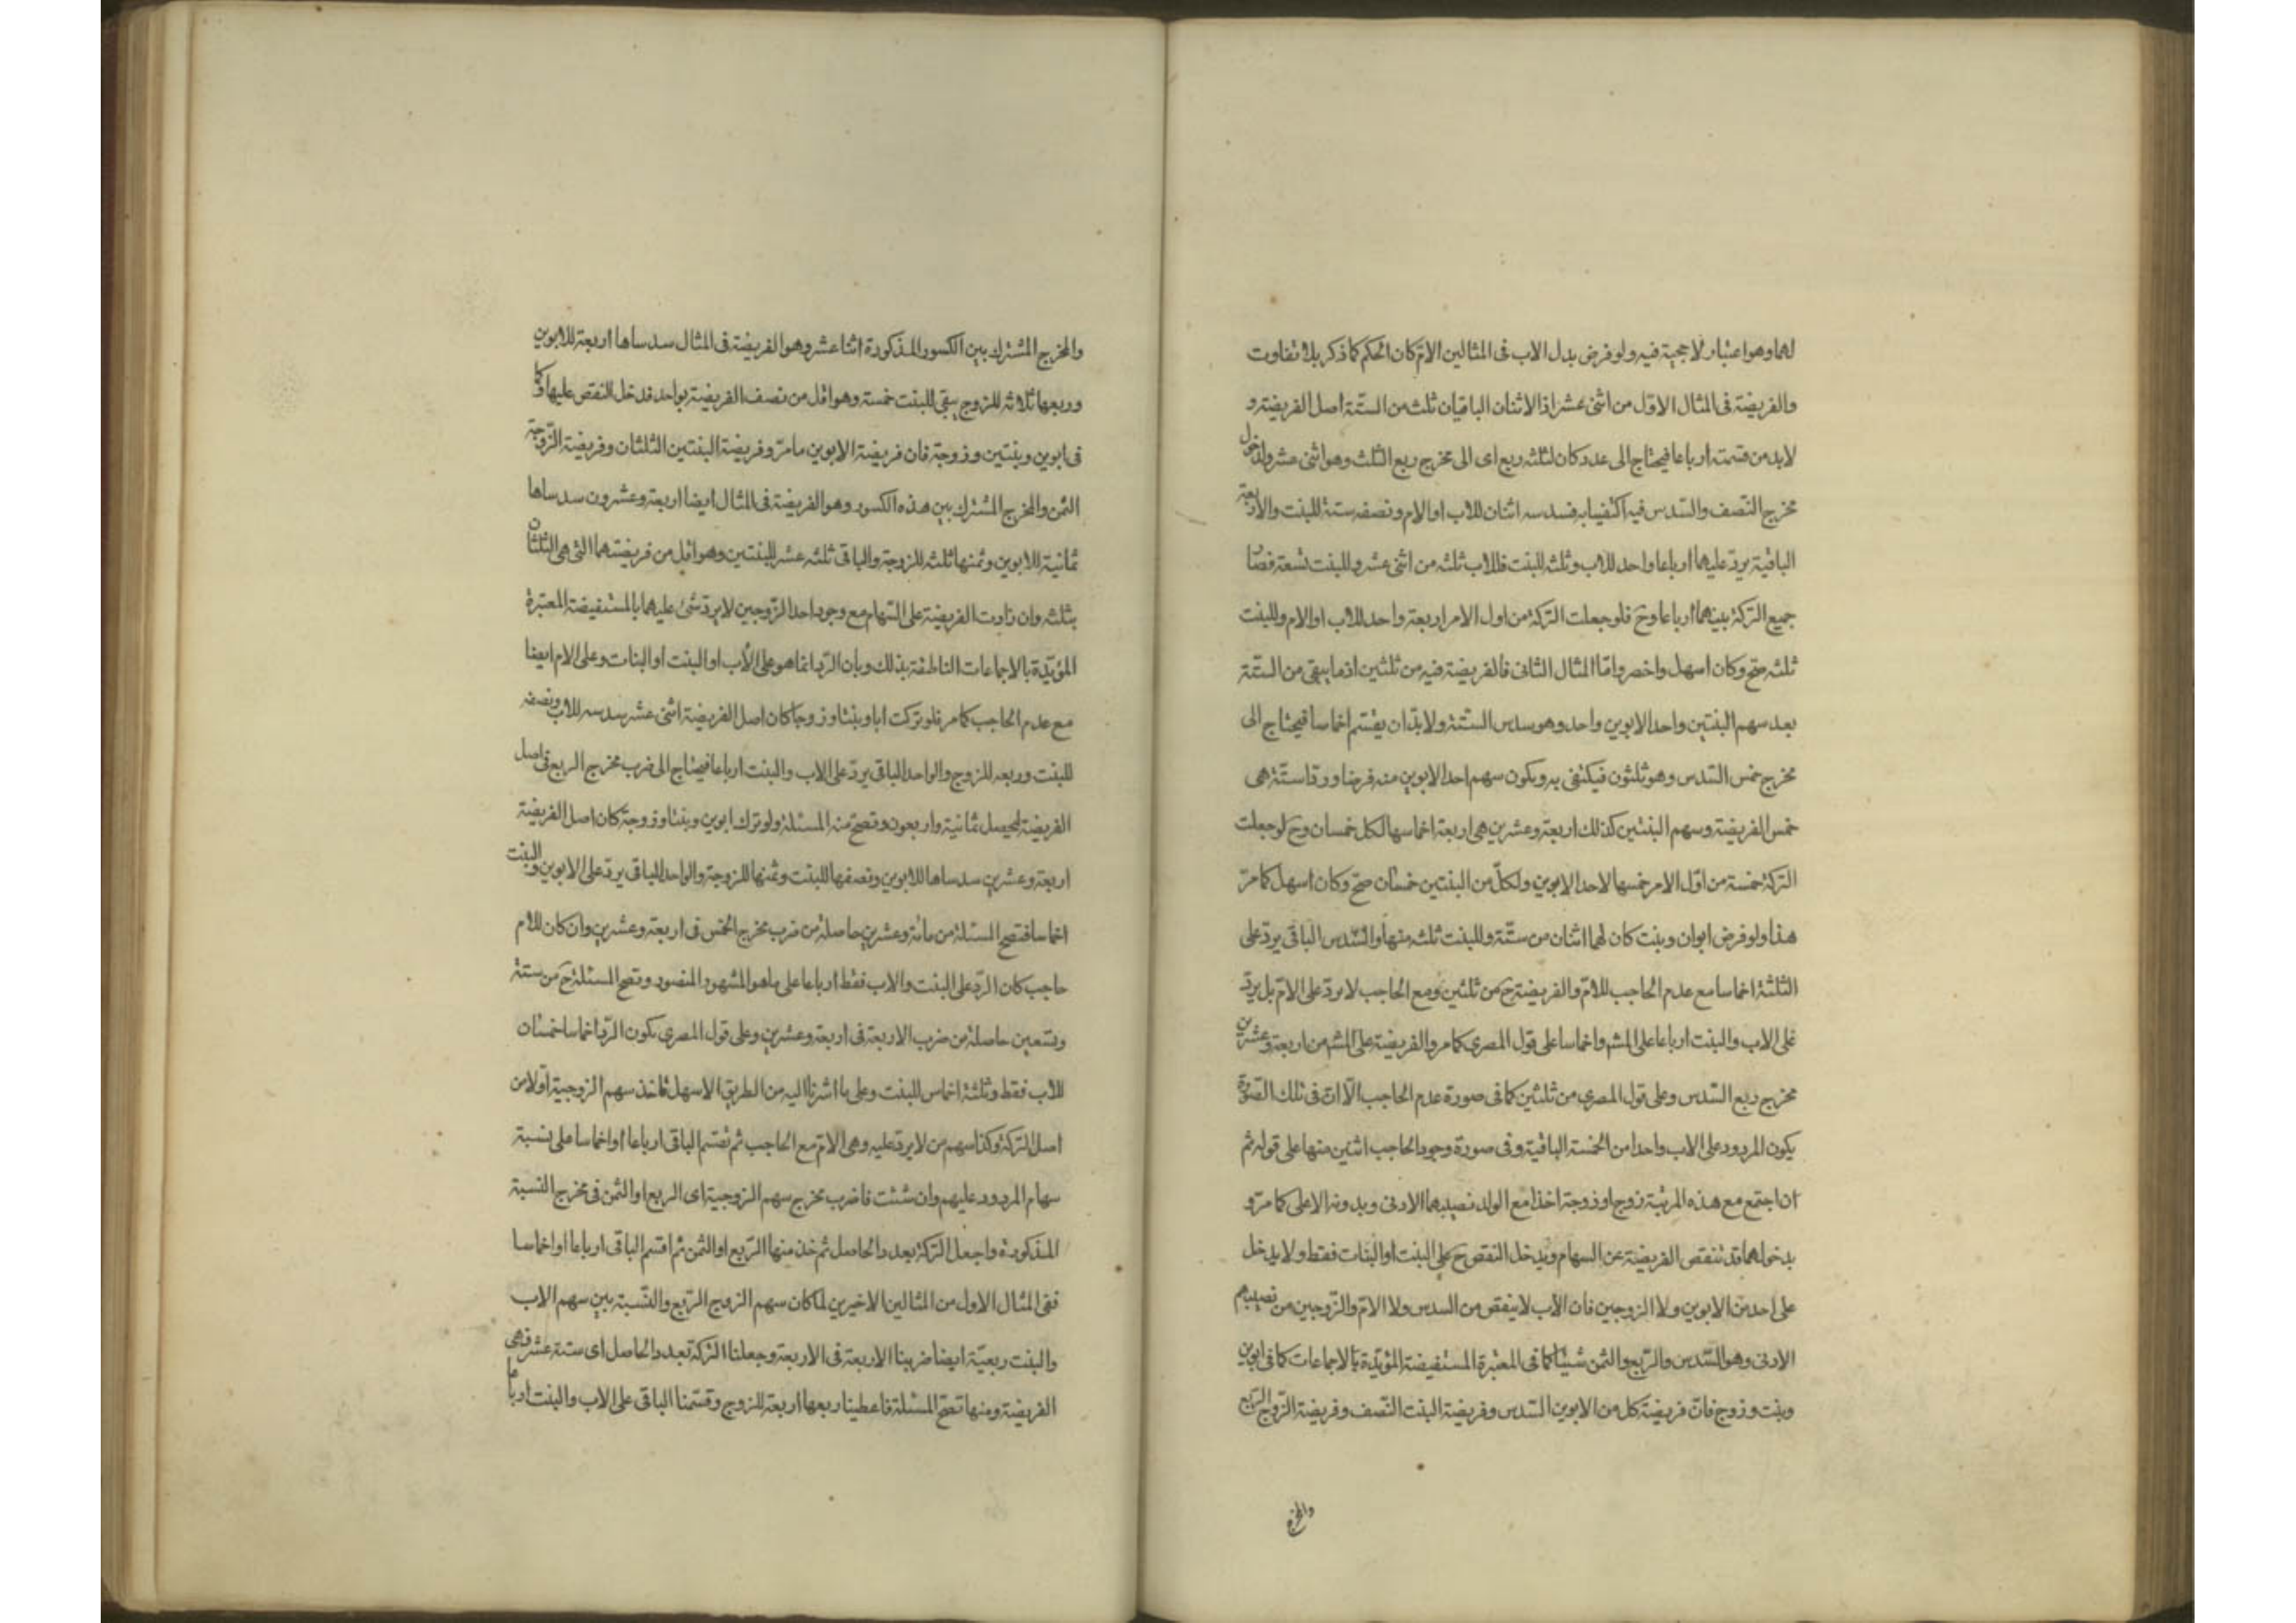 لهما وهو اعتبار لا حجية فيه ولو فرض بدل الاب فى المثالين الامّ كان الحكم كما ذكر بلا تفاوت
والفريضة فى المثال الاوّل من اثنى عشر اذ الاثنان الباقيان ثلث من الستّة اصل الفريضة و
لابد من قسمته ارباعا فيحتاج الى عدد كان لثلثه ربع اى الى مخرج ربع الثلث وهو اثنى عشر ولدخول
مخرج النّصف والسّدس فيه اكتفينا به فسدسه اثنان للاب او الام ونصفه ستة للبنت والاربعة
الباقية يردّ عليهما ارباعا واحد للاب وثلثه للبنت فللاب ثلثه من اثنى عشر وللبنت تسعة فصار
جميع التركة بينهما ارباعا وحَ فلو جعلت التركة من اول الامر اربعة واحد للاب او الام وللبنت
ثلثه صحّ وكان اسهل واخصر وامّا المثال الثانى فالفريضة فيه من ثلثين اذ ما يبقى من الستّة
بعد سهم البنتين واحد الابوين واحد وهو سدس الستّة ولابدّ ان يقسّم اخماسا فيحتاج الى
مخرج خمس السّدس وهو ثلثون فيكتفى به ويكون سهم احد الابوين منه فرضا وردّا ستّة هى
خمس الفريضة وسهم البنتين كذلك اربعة وعشرين هى اربعة اخماسها لكل خمسان وحَ لو جعلت
التركة خمسة من اوّل الامر خمسها لاحد الابوين ولكلّ من البنتين خمسان صحّ وكان اسهل كما مرّ
هذا ولو فرض ابوان وبنت كان لهما اثنان من ستّة وللبنت ثلثه منها والسّدس الباقى يردّ على
الثلثة اخماسا مع عدم الحاجب للامّ والفريضة حَ من ثلثين ومع الحاجب لا يردّ على الامّ بل يردّ
على الاب والبنت ارباعا على المشهـ واخماسا على قول المصرى كما مر والفريضة على المشهـ من اربعة وعشرين
مخرج ربع السّدس وعلى قول المصرى من ثلثين كما فى صورة عدم الحاجب الّا انّ فى تلك الصّورة
يكون المردود على الاب واحدا من الخمسة الباقية وفى صورة وجود الحاجب اثنين منها على قوله ثم
ان اجتمع مع هذه المرتبة زوج او زوجة اخذا مع الولد نصيبهما الادنى وبدونه الاعلى كما مرّ و
بدخولهما قد تنقص الفريضة عن السهام ويدخل النقص حَ على البنت او البنات فقط ولا يدخل
على احد من الابوين ولا الزوجين فان الاب لا ينقص من السدس ولا الامّ والزّوجين من نصيبهم
الادنى وهو السّدس والرّبع والثمن شيئا كما فى المعتبرة المستفيضة المؤيّدة بالاجماعات كما فى ابوين
وبنت وزوج فانّ فريضة كل من الابوين السّدس وفريضة البنت النّصف وفريضة الزّوج الرّبع
والمخرج
والمخرج المشترك بين الكسور المذكورة اثنا عشر وهو الفريضة فى المثال سدساها اربعة للابوين
وربعها ثلاثه للزوج يبقى للبنت خمسة وهو اقل من نصف الفريضة بواحد قد دخل النقص عليها وكما
فى ابوين وبنتين وزوجة فان فريضة الابوين ما مرّ وفريضة البنتين الثلثان وفريضة الزّوجة
الثمن والمخرج المشترك بين هذه الكسور وهو الفريضة فى المثال ايضا اربعة وعشرون سدساها
ثمانية للابوين وثمنها ثلثه للزوجة والباقى ثلثه عشر للبنتين وهو اقل من فريضتهما التى هى الثلثان
بثلثه وان زادت الفريضة على السّهام مع وجود احد الزّوجين لا يردّ شئ عليهما بالمستفيضة المعتبرة
المؤيّدة بالاجماعات الناطقة بذلك وبان الرّد انما هو على الأب او البنت او البنات وعلى الام ايضا
مع عدم الحاجب كما مر فلو تركت ابا وبنتا وزوجا كان اصل الفريضة اثنى عشر سدسه للاب ونصفه
للبنت وربعه للزوج والواحد الباقى يردّ على الاب والبنت ارباعا فيحتاج الى ضرب مخرج الربع فى اصل
الفريضة ليحصل ثمانية واربعون وتصحّ منه المسئلة ولو ترك ابوين وبنتا وزوجة كان اصل الفريضة
اربعة وعشرين سدساها للابوين ونصفها للبنت وثمنها للزوجة والواحد الباقى يردّ على الابوين والبنت
اخماسا فتصح المسئلة من مائة وعشرين حاصلة من ضرب مخرج الخمس فى اربعة وعشرين وان كان للام
حاجب كان الرّد على البنت والاب فقط ارباعا على ما هو المشهور المنصور وتصح المسئلة حَ من ستة
وتسعين حاصلة من ضرب الاربعة فى اربعة وعشرين وعلى قول المصرى يكون الرّد اخماسا خمسان
للاب فقط وثلثة اخماس للبنت وعلى ما اشرنا اليه من الطريق الاسهل تاخذ سهم الزوجية اوّلا من
اصل التركة وكذا سهم من لا يردّ عليه وهى الامّ مع الحاجب ثم تقسّم الباقى ارباعا او اخماسا على نسبة
سهام المردود عليهم وان شئت فاضرب مخرج سهم الزوجية اى الربع او الثمن فى مخرج النّسبة
المذكورة واجعل التركة بعدد الحاصل ثم خذ منها الرّبع او الثمن ثم اقسم الباقى ارباعا او اخماسا
ففى المثال الاول من المثالين الاخيرين لما كان سهم الزوج الرّبع والنّسبة بين سهم الاب
والبنت ربعيّة ايضا ضربنا الاربعة فى الاربعة وجعلنا التركة بعدد الحاصل اى ستة عشر فهى
الفريضة ومنها تصحّ المسئلة فاعطينا ربعها اربعة للزوج وقسّمنا الباقى على الاب والبنت ارباعا